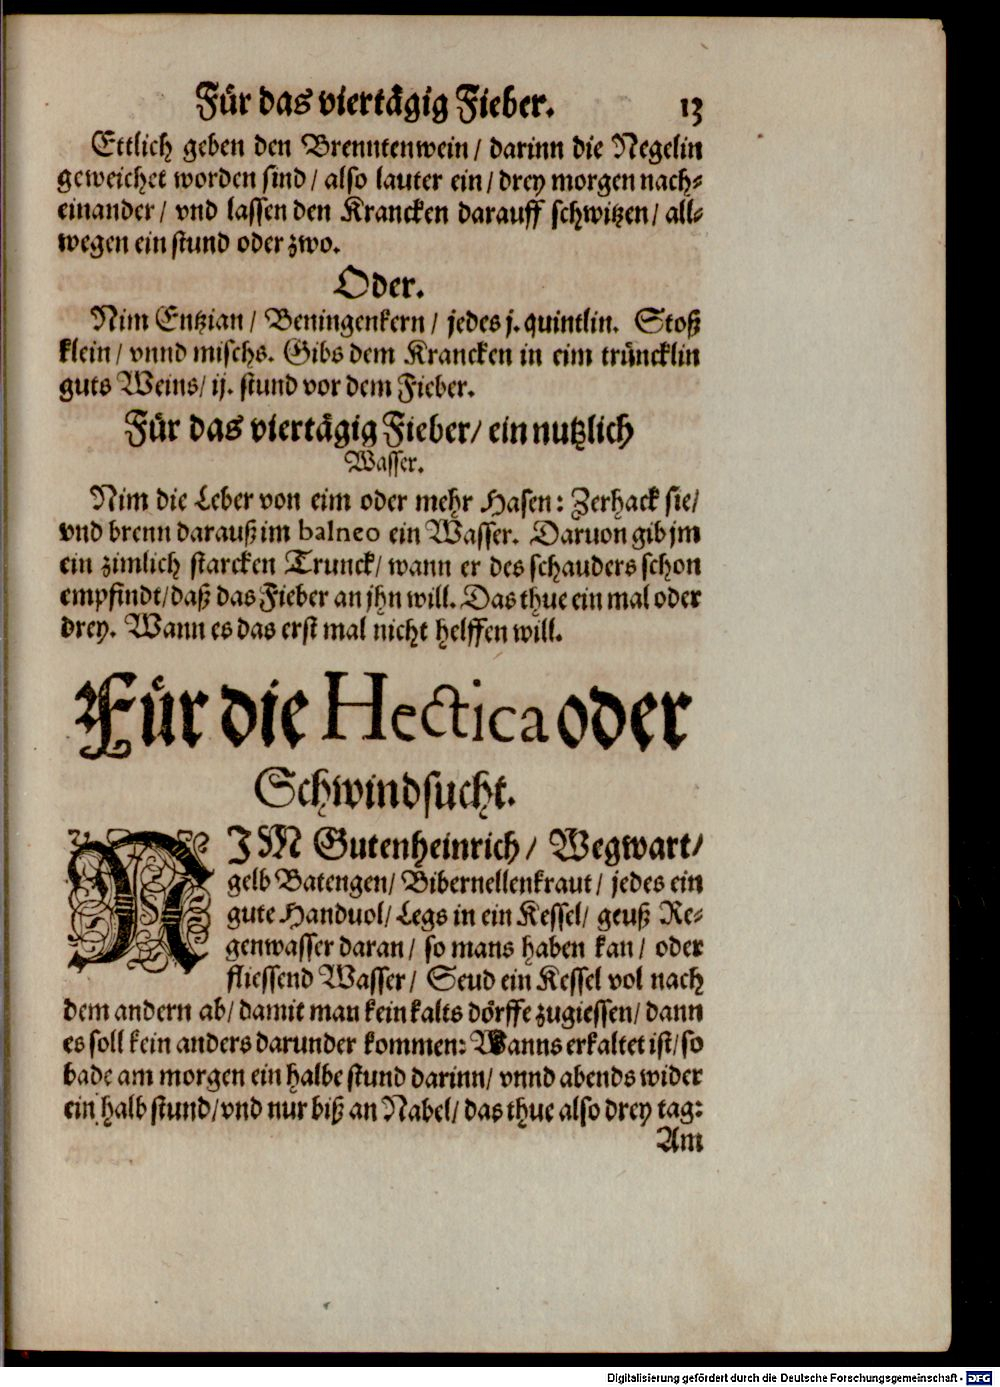 Für das viertägig Fieber. 13
Ettlich geben den Brenntenwein / darinn die Negelin
geweichet worden sind / also lauter ein / drey morgen nach⸗
einander / vnd lassen den Krancken darauff schwitzen / all⸗
wegen ein stund oder zwo.
Oder.
Nim Entzian / Beningenkern / jedes j. quintlin. Stoß
klein / vnnd mischs. Gibs dem Krancken in eim trüncklin
guts Weins / ij. stund vor dem Fieber.
Für das viertägig Fieber / ein nutzlich
Wasser.
Nim die Leber von eim oder mehr Hasen: Zerhack sie /
vnd brenn darauß im balneo ein Wasser. Daruon gib jm
ein zimlich starcken Trunck / wann er des schauders schon
empfindt / daß das Fieber an jhn will. Das thue ein mal oder
drey. Wann es das erst mal nicht helffen will.
Für die Hectica oder
Schwindsucht.
NIM Gutenheinrich / Wegwart /
gelb Batengen / Bibernellenkraut / jedes ein
gute Handuol / Legs in ein Kessel / geuß Re⸗
genwasser daran / so mans haben kan / oder
fliessend Wasser / Seud ein Kessel vol nach
dem andern ab / damit man kein kalts dörffe zugiessen / dann
es soll kein anders darunder kommen: Wanns erkaltet ist / so
bade am morgen ein halbe stund darinn / vnnd abends wider
ein halb stund / vnd nur biß an Nabel / das thue also drey tag:
Am
Digitalisierung gefördert durch die Deutsche Forschungsgemeinschaft - DFG